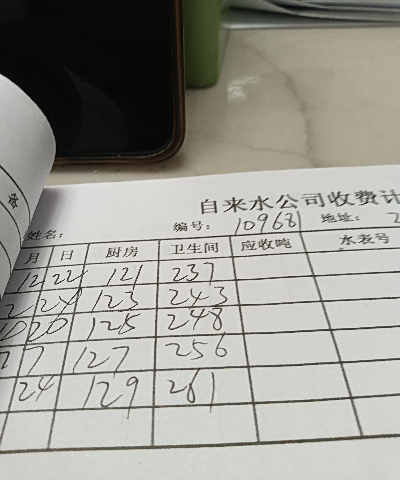 自来水公司收费计
姓名: 编号: 109681 地址: 2
月 日 厨房 卫生间 应收吨 水表号
12 22 121 237
2 24 123 243
10 20 125 248
7 127 256
24 129 261